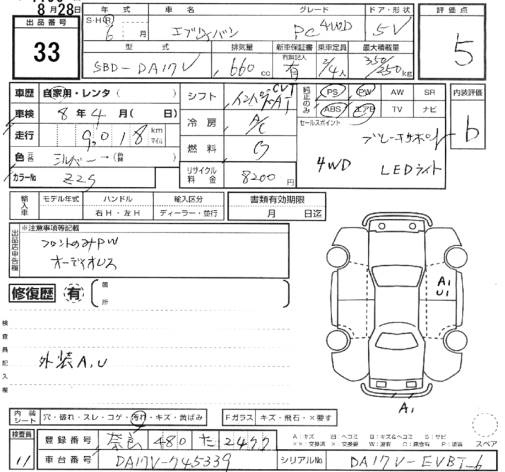 8月28日
出品番号
33
年式 車名 グレード ドア・形状
S・H・R 6 月 エブリィバン PC 4WD 5V
型式 排気量 新車保証書 乗車定員 最大積載量
内装記入 有
5BD-DA17V 660cc 2/4人 350/250kg
評価点
5
車歴 自家用・レンタ( )
車検 8年4月( 日)
走行 9,018 km マイル
色 シルバー→
カラーNo Z2S
シフト インパネ CVT AT
冷房 A/C
燃料 G
リサイクル料金 8200円
純正のみ PS PW AW SR
ABS エアB TV ナビ
セールスポイント
ブレーキサポート
4WD LEDライト
内装評価
b
輸入車 モデル年式 ハンドル 輸入区分
右H・左H ディーラー・並行
書類有効期限
月 日迄
出品店申告欄
※注意事項等記載
フロントのみPW
オーディオレス
修復歴 有 箇所
検査員記入欄
外装A,U
A1
U1
A1
内装シート 穴・破れ・スレ・コゲ・汚れ・キズ・黄ばみ
Fガラス キズ・飛石・×要す
スペア
検査員
11
登録番号 奈良 480 た 2477
車台番号 DA17V-745339
シリアルNo DA17V-EVBT-6